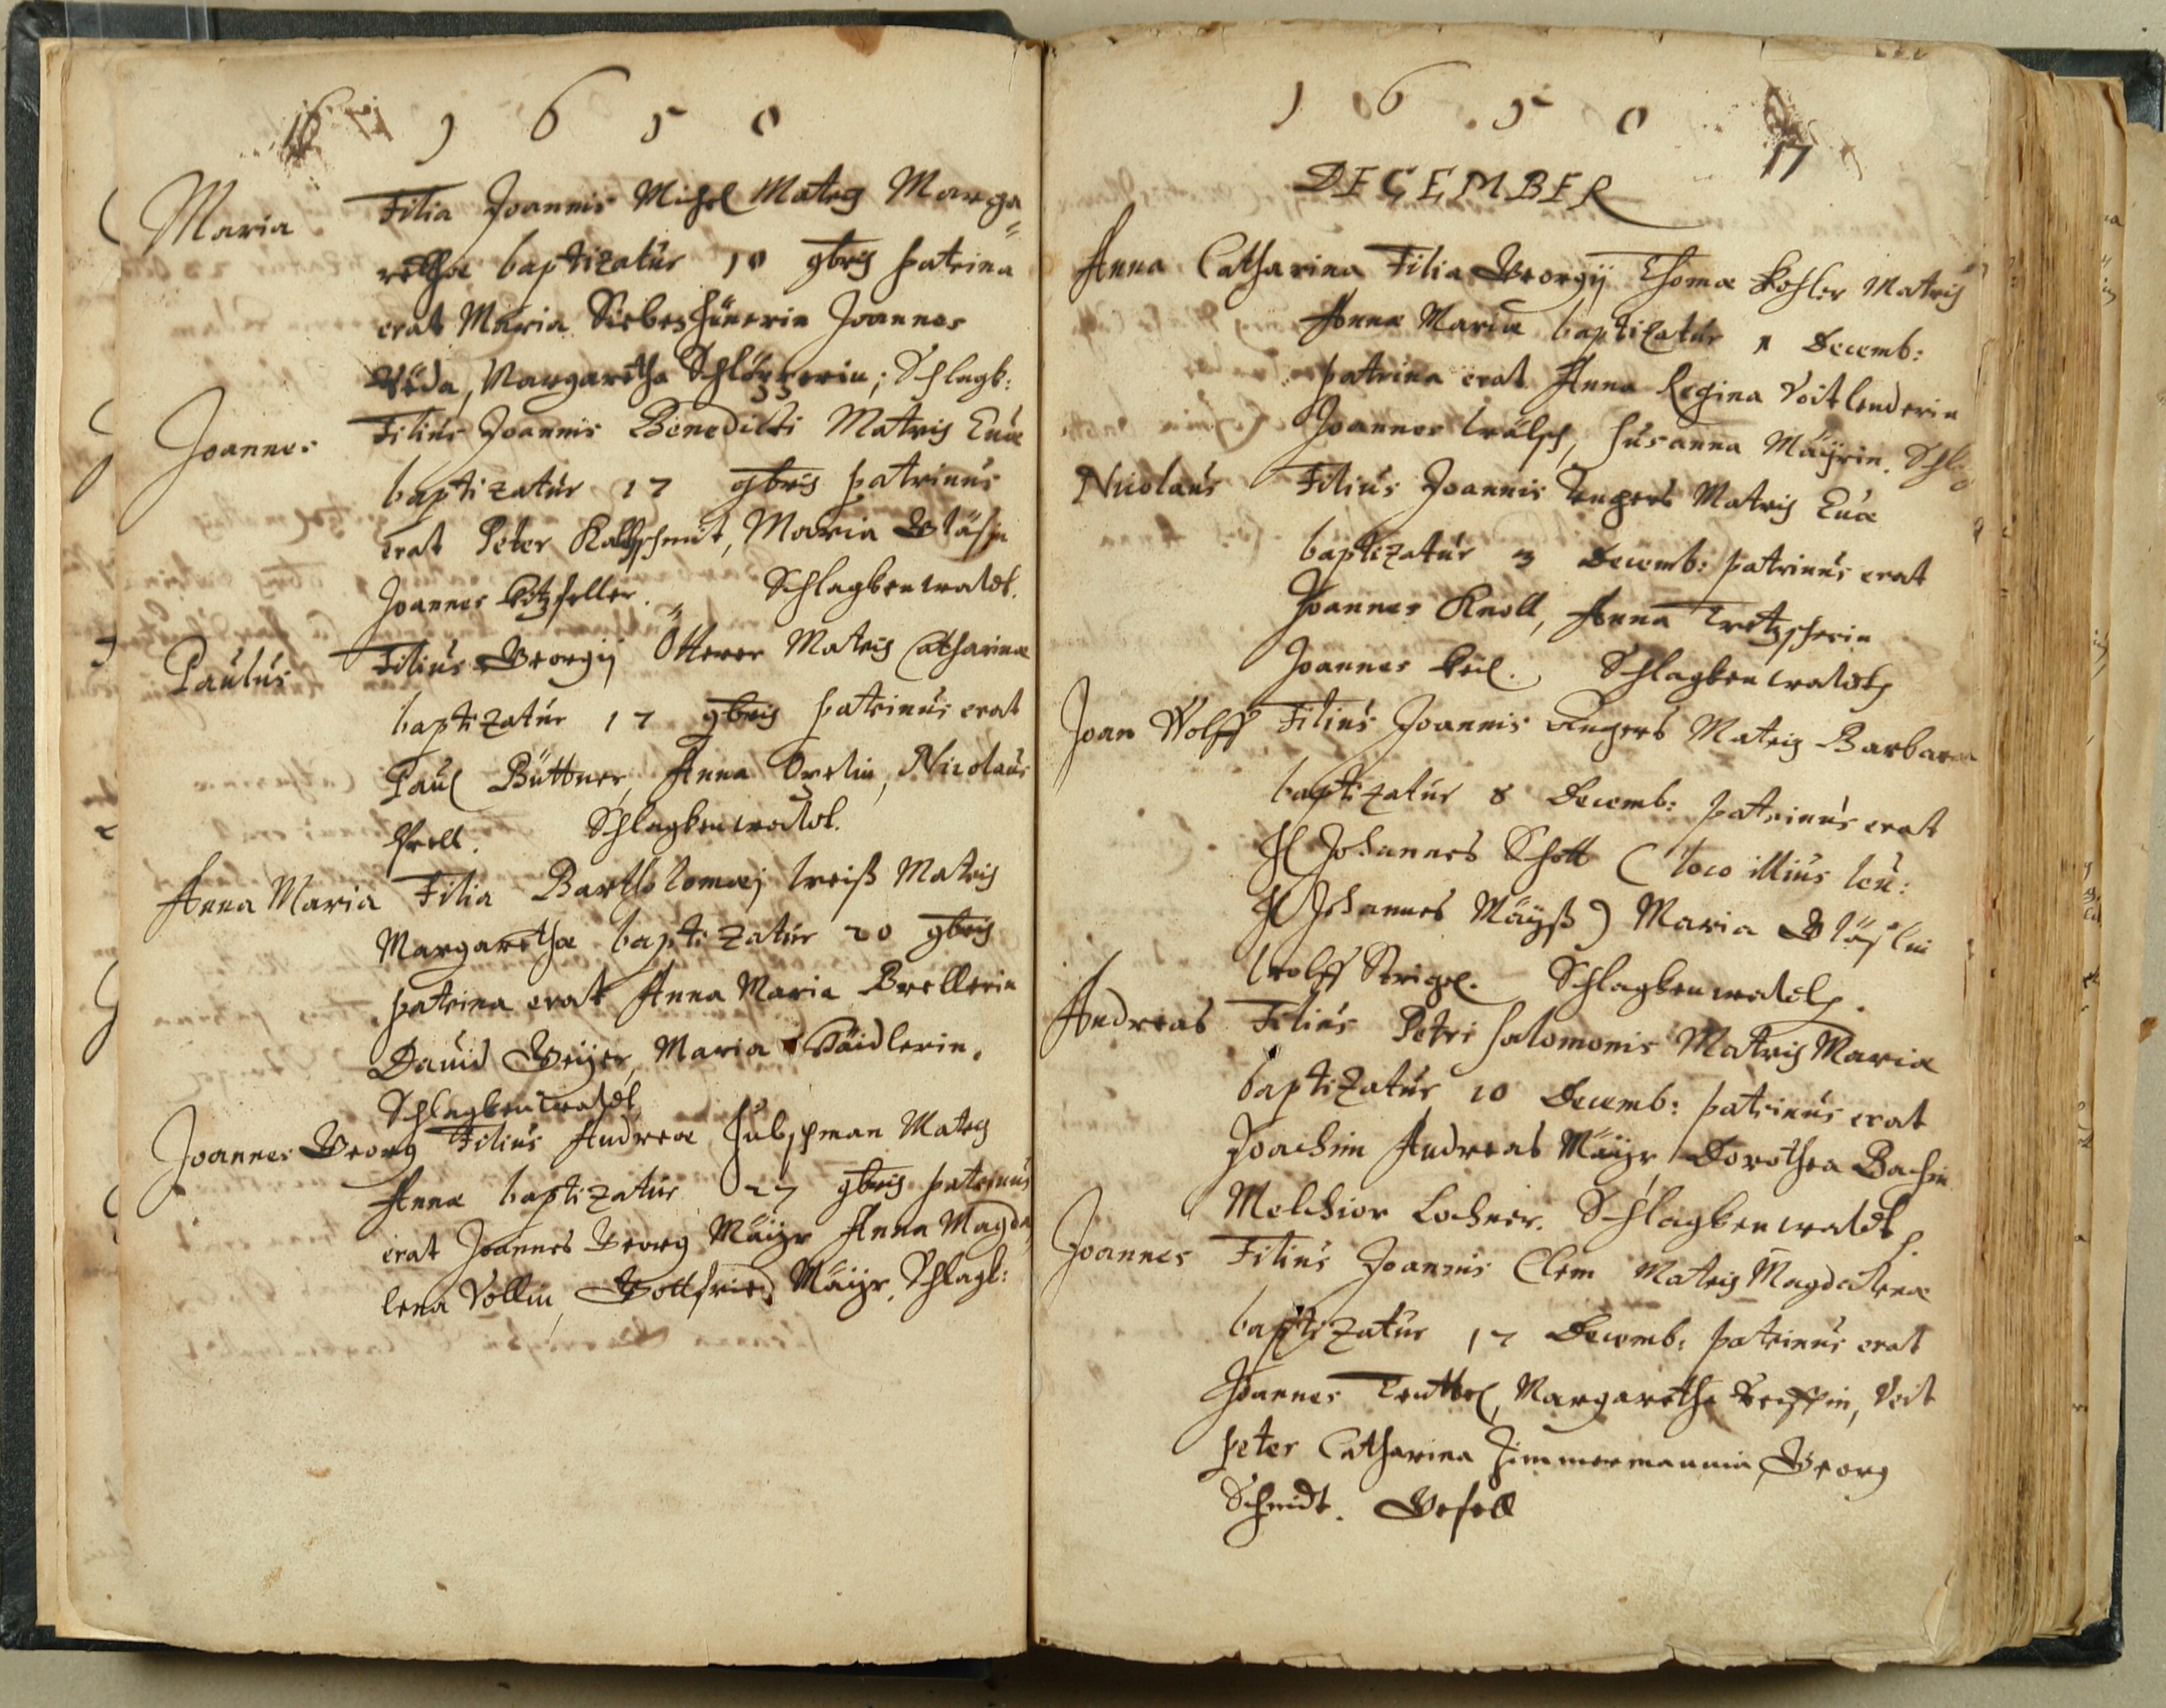 16
1650
Maria Filia Joannis Michel Matris Marga=
rethae baptizatur 10 9bris patrina
erat Maria Siebenhünerin Joannes
Margaretha Schlagk:
Joannes Filius Joannis Benedicti Matris Euae
baptizatur 17 9bris patrinus
erat Peter Kaltschmit, Maria Gläsin
Joannes Schlagkenwaldt.
Paulus Filius Georgij Otterer Matris Catharinae
baptizatur 17 9bris patrinus erat
Paul Büttner, Anna Nicolaus
Schlagkenwaldt.
Anna Maria Filia Bartholomaej Weiß Matris
Margarethae baptizatur 20 9bris
patrina erat Anna Maria Brellerin
Dauid Geijer, Maria
Schlagkenwaldt
Joannes Georg Filius Andreae Matris
Annae baptizatur 27 9bris patrinus
erat Joannes Georg Mäijr Anna Magda
lena Gottfried Mäijr, Schlagk:
1650
17
DECEMBER
Anna Catharina Filia Georgij Thomae Kohler Matris
Annae Mariae baptizatur 1 Decemb:
patrina erat Anna Regina Voitlenderin
Joannes Wälsch, Susanna Mäijrin. Schla
Nicolaus Filius Joannis Matris Euae
baptizatur 3 Decemb: patrinus erat
Joannes Knoll, Anna
Joannes Schlagkenwaldt
Joan Wolff Filius Joannis Angers Matris Barbarae
baptizatur 8 Decemb: patrinus erat
H Johannes Schott (loco illius
H Johannes Mäyß) Maria Gläslin
Wolff Schlagkenwaldt.
Andreas Filius Petri Salomonis Matris Mariae
baptizatur 10 Decemb: patrinus erat
Joachim Andreas Mäijr, Dorothea Bachin
Melchior Lochner. Schlagkenwaldt.
Joannes Filius Joannis Clem Matris Magdalenae
baptizatur 17 Decemb: patrinus erat
Joannes Margaretha Voit
peter Catharina Zimmermannin, Georg
Schmidt. Gefell